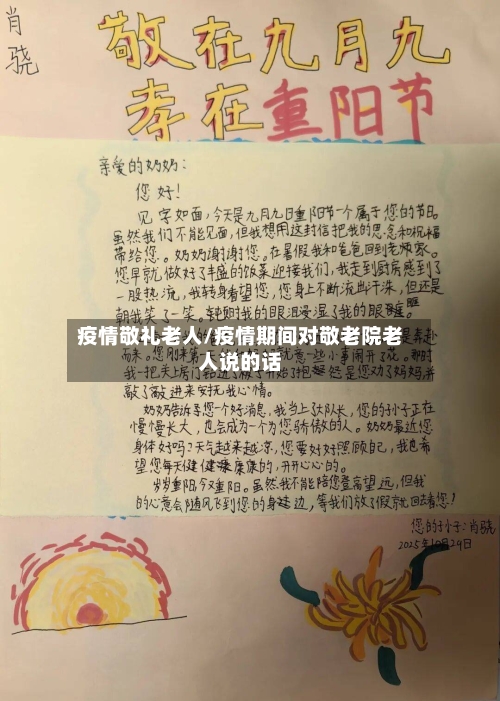 肖骁
敬在九月九
孝在重阳节
亲爱的奶奶：
您好！
见字如面，今天是九月九日重阳节一个属于您的节日。
虽然我们不能见面，但我想用这封信把我的思念和祝福
带给您。奶奶谢谢您。在暑假我和爸爸回到老
您早就做好了丰盛的饭菜迎接我们，我走到厨房感到了
一股热流，我转身看望您，您身上不断流出汗洙，但还是
朝我笑了一笑。我的眼泪浸湿了我的眼
疫情敬礼老人/疫情期间对敬老院老
人说的话
而来。您刚来第一些小事闹开了花。那时
我一把关上房门然是您劝了妈妈并
敲了敲进来安抚我心情。
奶奶告诉您一个好消息，我当上了大队长，您的孙子正在
慢慢长大，也会成为一个为您骄傲的人。奶奶最近您
身体好吗？天气越来越凉，您要好好照顾自己，我也希
望您每天健健康康的，开开心心的。
岁岁重阳今又重阳。虽然我不能陪您登高望远，但我
的心意会随风飞到您的身边，等我们放了假就回去看您！
您的孙子：肖骁
2025年10月29日